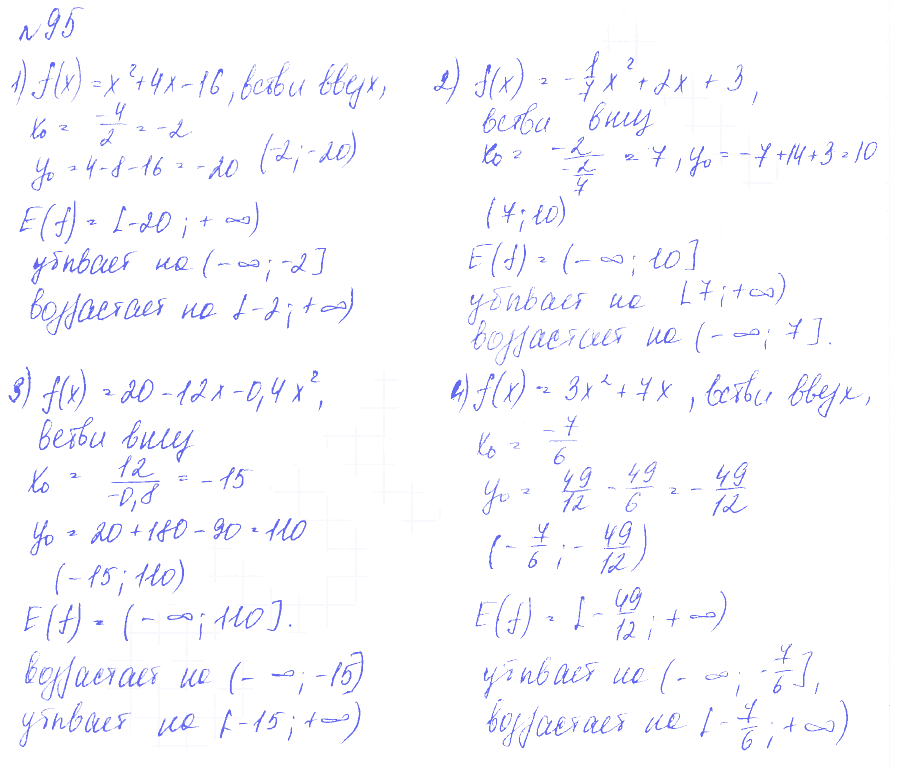 №95
1) f(x) = x² + 4x - 16, ветви вверх,
x₀ = -4/2 = -2
y₀ = 4 - 8 - 16 = -20 (-2; -20)
E(f) = [-20; +∞)
убывает на (-∞; -2]
возрастает на [-2; +∞)
2) f(x) = -1/7 x² + 2x + 3,
ветви вниз
x₀ = -2/(-2/7) = 7, y₀ = -7 + 14 + 3 = 10
(7; 10)
E(f) = (-∞; 10]
убывает на [7; +∞)
возрастает на (-∞; 7].
3) f(x) = 20 - 12x - 0,4x²,
ветви вниз
x₀ = 12/-0,8 = -15
y₀ = 20 + 180 - 90 = 110
(-15; 110)
E(f) = (-∞; 110].
возрастает на (-∞; -15]
убывает на [-15; +∞)
4) f(x) = 3x² + 7x, ветви вверх,
x₀ = -7/6
y₀ = 49/12 - 49/6 = -49/12
(-7/6; -49/12)
E(f) = [-49/12; +∞)
убывает на (-∞; -7/6],
возрастает на [-7/6; +∞)